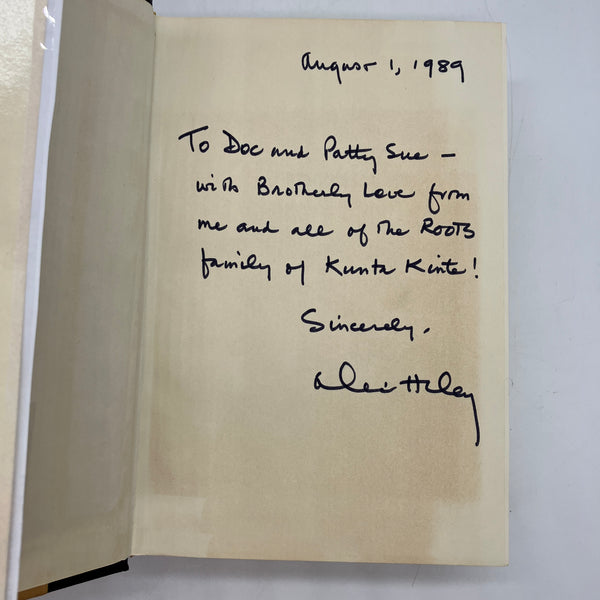 August 1, 1989
To Doc and Patty Sue —
with Brotherly Love from
me and all of the ROOTS
family of Kunta Kinte!
Sincerely,
Alex Haley